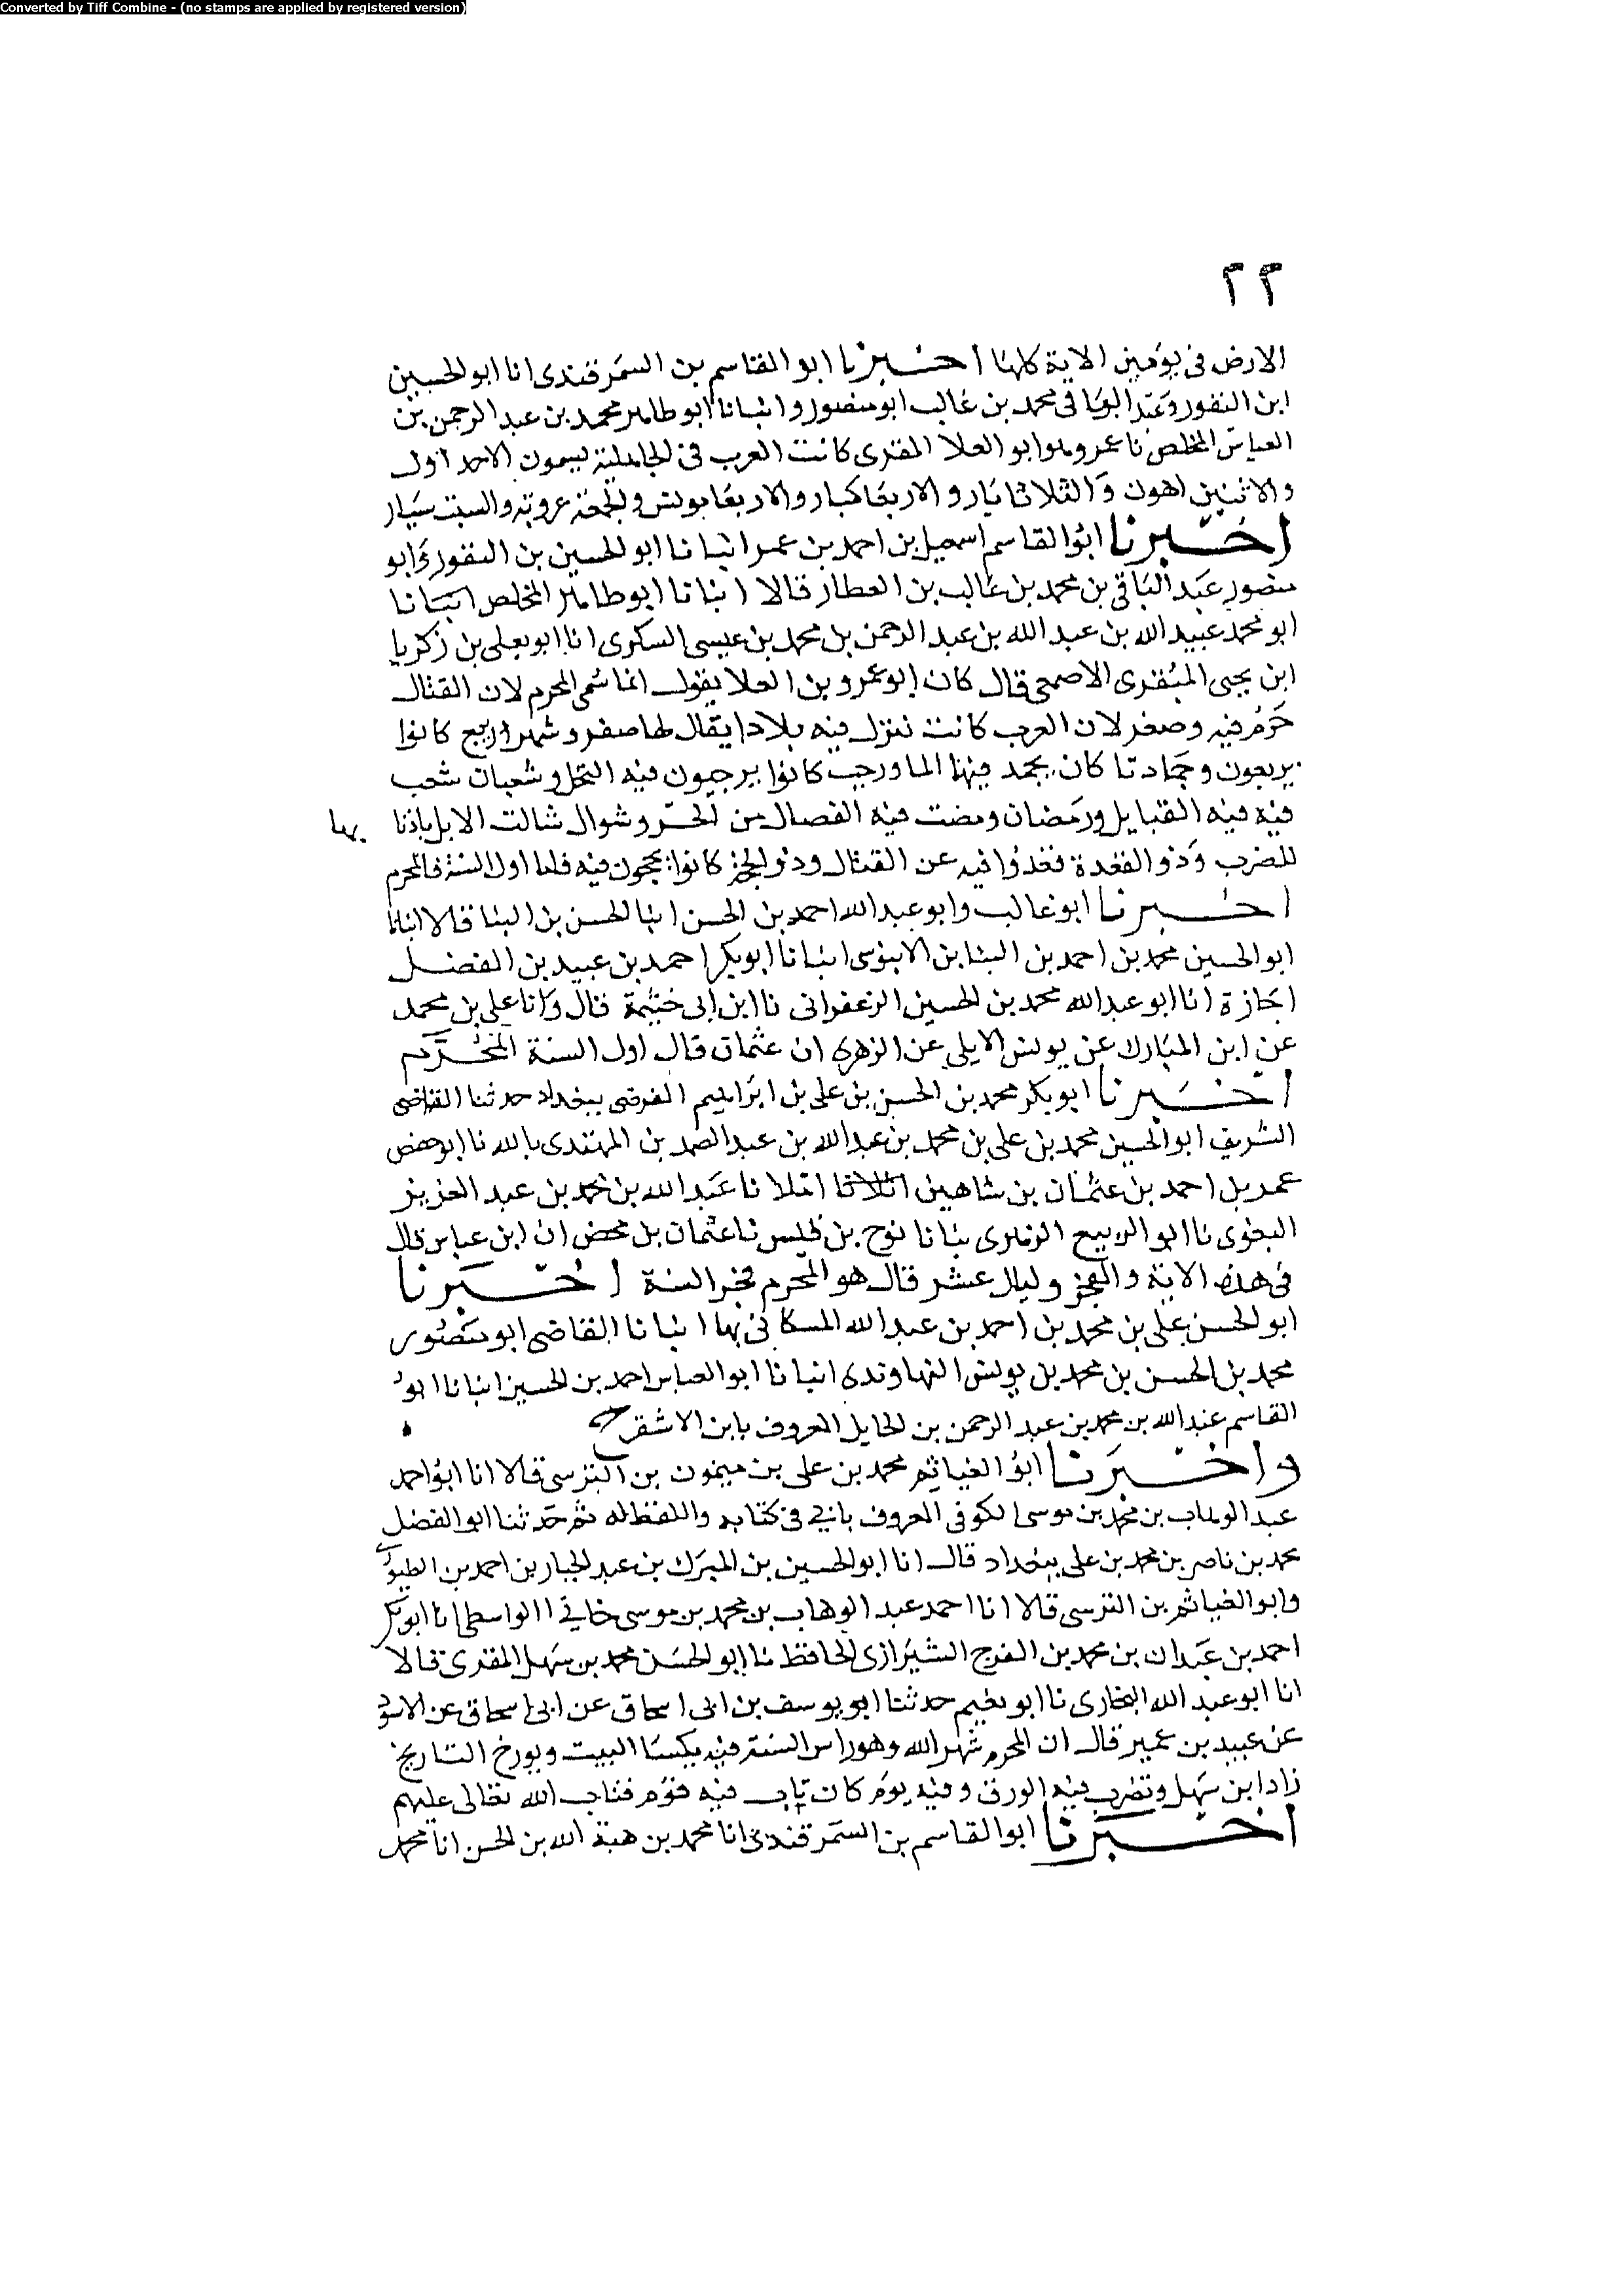 Converted by Tiff Combine - (no stamps are applied by registered version)
٢٢
الارض فى يومين الاية كلها اخبرنا ابو القاسم بن السمرقندى انا ابو الحسين
ابن النقور وعبد الباقى محمد بن غالب ابو منصور و انبانا ابو طاهر محمد بن عبد الرحمن بن
العباس المخلص نا عمرو وهو ابو العلا المقرى كانت العرب فى الجاهلية يسمون الاحد اول
والاثنين اهون والثلاثا وبار والاربعا كبار والاربعا مونس والجمعة عروبة والسبت شيار
اخبرنا ابو القاسم اسمعيل بن احمد بن عمر انبانا ابو الحسين بن النقور وابو
منصور عبد الباقى بن محمد بن غالب بن العطار قالا انبانا ابو طاهر المخلص انبانا
ابو محمد عبيد الله بن عبد الله بن عبد الرحمن بن محمد بن عيسى السكرى انا ابو يعلى بن زكريا
ابن يحيى المنقرى الاصمعى قال كان ابو عمرو بن العلا يقول انما سمى المحرم لان القتال
حرم فيه وصفر لان العرب كانت تنزل فيه بلادا يقال لها صفر و شهرا ربيع كانوا
يربعون و جمادتا كان يجمد فيها الما ورجب كانوا يرجبون فيه النخل و شعبان شعب
فيه فيه القبايل ورمضان ومضت فيه الفصال من الحر و شوال شالت الابل باذنا بها
للضرب وذو القعدة قعدوا فيه عن القتال وذو الحجة كانوا يحجون فيه فلما اول السنة فالمحرم
اخبرنا ابو غالب وابو عبد الله احمد بن الحسن ابنا الحسن بن البنا قالا انبانا
ابو الحسين محمد بن احمد بن البنا بن الابنوسى انبانا ابو بكر احمد بن عبيد بن الفضل
اجازة انا ابو عبد الله محمد بن الحسين الزعفرانى نا ابن ابى خيثمة قال وانا على بن محمد
عن ابن المبارك عن يونس الايلى عن الزهرى ان عثمان قال اول السنة المحرم
اخبرنا ابو بكر محمد بن الحسن بن على بن ابراهيم الفرضى ببغداد حدثنا القاضى
الشريف ابو الحسين محمد بن على بن محمد بن عبد الله بن عبد الصمد بن المهتدى بالله نا ابو حفص
عمر بن احمد بن عثمان بن شاهين املا نا عبد الله بن محمد بن عبد العزيز
البغوى نا ابو الربيع الزهرى نبانا نوح بن قيس نا عثمان بن محض ان ابن عباس قال
فى هذه الاية والفجر وليال عشر قال هو المحرم فجر السنة اخبرنا
ابو الحسن على بن محمد بن احمد بن عبد الله المسكانى بها انبانا القاضى ابو منصور
محمد بن الحسن بن محمد بن يونس النهاوندى انبانا ابو العباس احمد بن الحسين انبانا ابو
القاسم عبد الله بن محمد بن عبد الرحمن بن الخليل المعروف بابن الاشقر ح
واخبرنا ابو الغياثم محمد بن على بن ميمون بن النرسى قالا انا ابو احمد
عبد الوهاب بن محمد بن موسى الكوفى المعروف بانى فى كتابه واللفظ له ثم حدثنا ابو الفضل
محمد بن ناصر بن محمد بن على ببغداد قال انا ابو الحسين بن المبرك بن عبد الجبار بن احمد بن الطيورى
وابو الغياثم بن النرسى قالا انا احمد عبد الوهاب بن محمد بن موسى الواسطى انا ابو بكر
احمد بن عبدان بن محمد بن الفرج الشيرازى الحافظ نا ابو الحسن محمد بن سهل المقرى قالا
انا ابو عبد الله البخارى نا ابو نعيم حدثنا ابو يوسف بن ابى اسحاق عن ابى اسحاق عن الاسود
عن عبيد بن عمير قال ان المحرم شهر الله وهو راس السنة فيه يكسا البيت ويورخ التاريخ
زاد ابن سهل وتضرب فيه الورق وفيه يوم كان تاب فيه قوم فتاب الله تعالى عليهم
اخبرنا ابو القاسم بن السمرقندى انا محمد بن هبة الله بن الحسن انا محمد